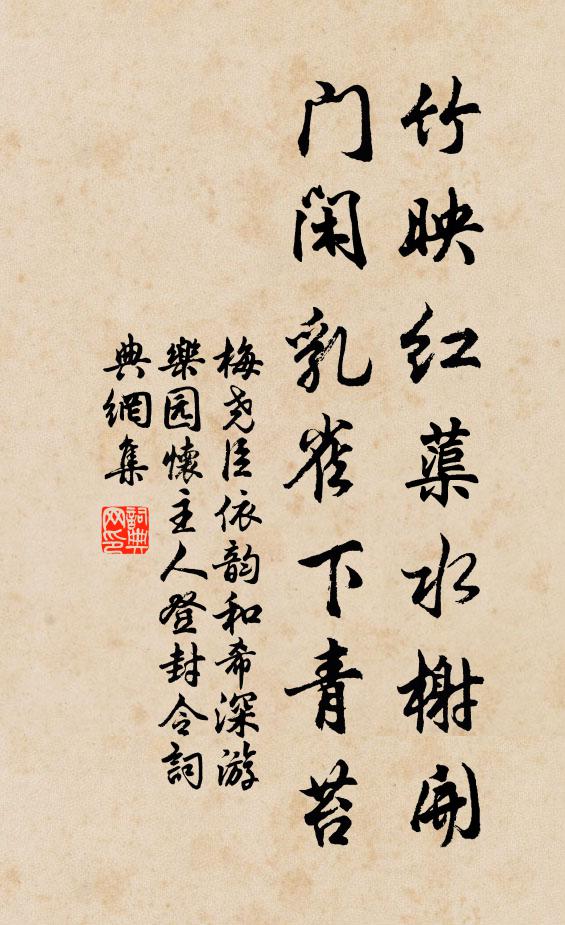 竹映红蕖水榭开
门闲乳雀下青苔
梅尧臣依韵和希深游
樂园懷主人登封令詞
典網集
詞典网印